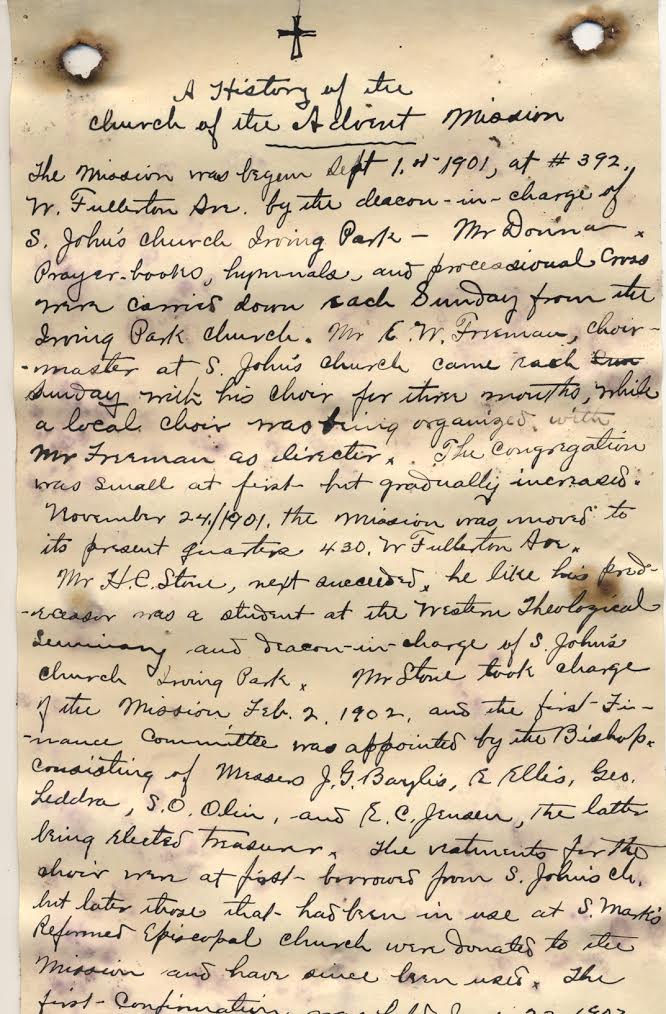 A History of the
church of the Advent Mission
The Mission was begun Sept 1.st 1901, at # 392.
W. Fullerton Ave. by the deacon-in-charge of
S. John's church Irving Park — Mr Donnan.
Prayer-books, hymnals, and processional Cross
were carried down each Sunday from the
Irving Park church. Mr E. W. Freeman, choir-
-master at S. John's church came each
Sunday with his choir for three months, while
a local choir was being organized with
Mr Freeman as director. The congregation
was small at first but gradually increased.
November 24/1901. the Mission was moved to
its present quarters 430. W Fullerton Ave.
Mr H. C. Stone, next succeeded, he like his pred-
-ecessor was a student at the Western Theological
Seminary and deacon-in-charge of S. John's
church Irving Park. Mr Stone took charge
of the Mission Feb. 2. 1902, and the first Fi-
-nance Committee was appointed by the Bishop.
consisting of Messers J. G. Baylis, E Ellis, Geo.
Leddra, S. O. Olin, and E. C. Jensen, the latter
being elected treasurer. The vestments for the
choir were at first borrowed from S. John's ch.
but later those that had been in use at S. Mark's
Reformed Episcopal church were donated to the
Mission and have since been used. The
first Confirmation